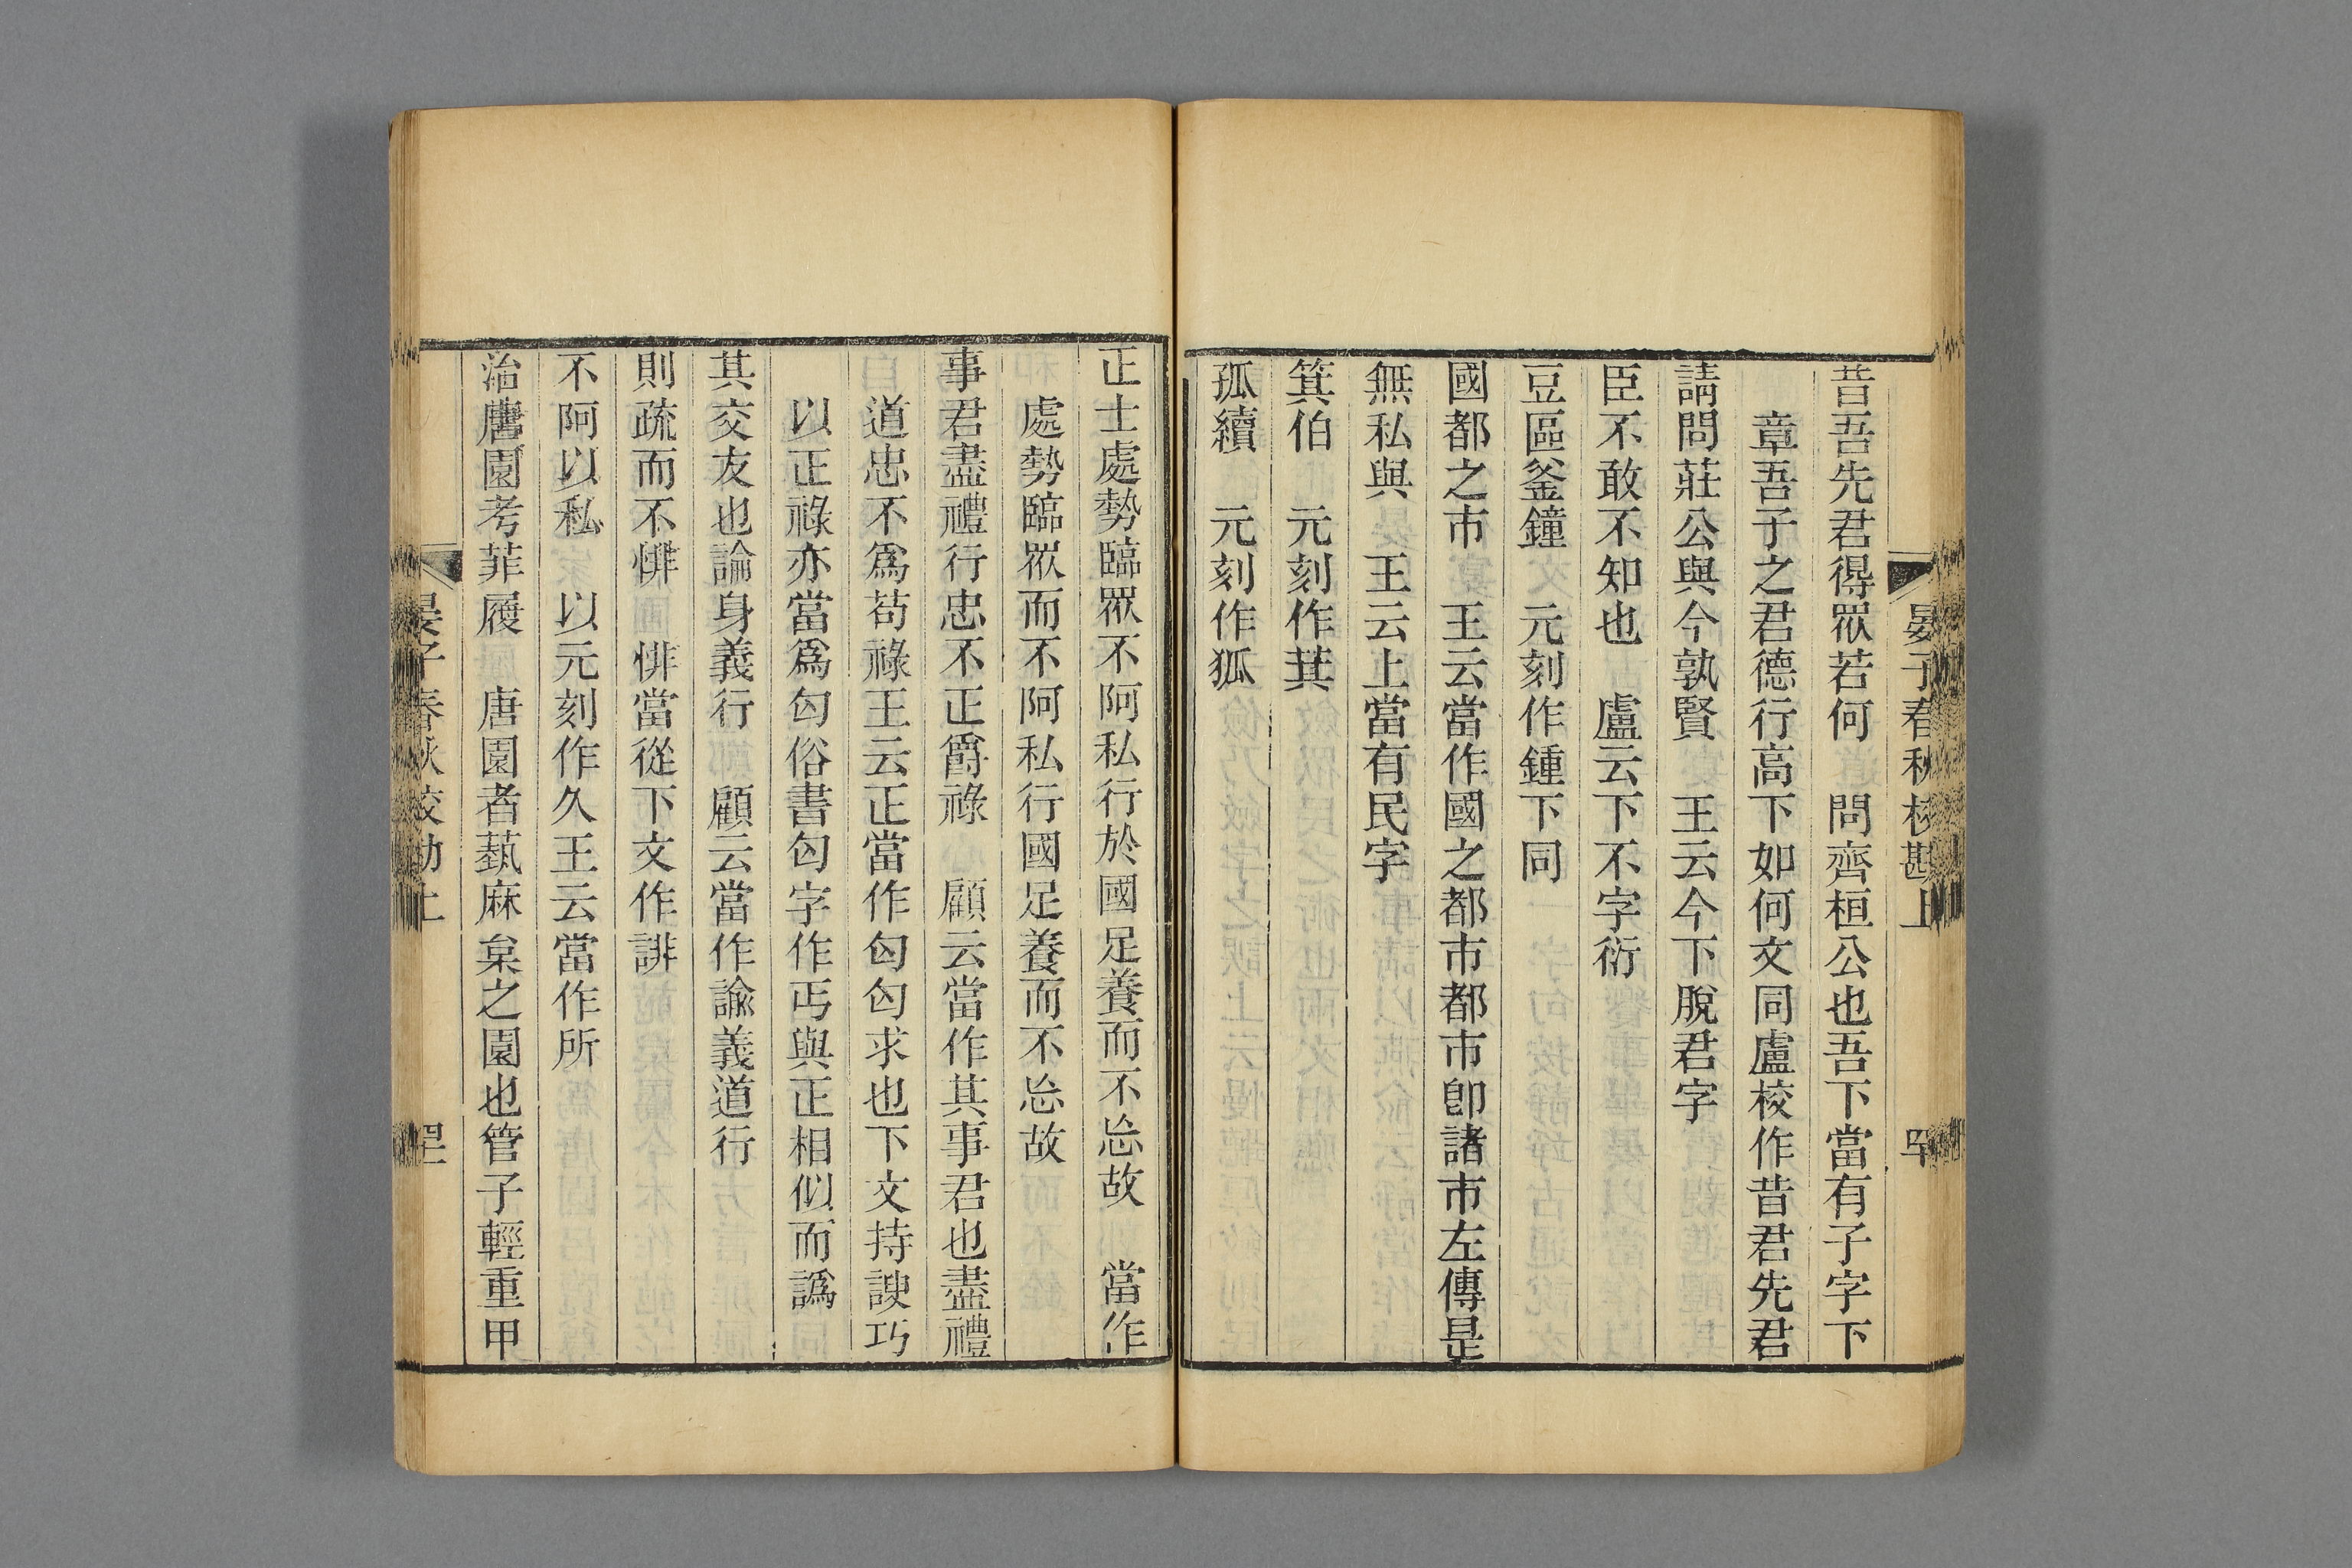 晏子春秋校勘上
昔吾先君得眾若何　問齊桓公也吾下當有子字下
章吾子之君德行高下如何文同盧校作昔君先君
請問莊公與今孰賢　王云今下脫君字
臣不敢不知也　盧云下不字衍
豆區釜鐘　元刻作鍾下同
國都之市　王云當作國之都市都市卽諸市左傳是
無私與　王云上當有民字
箕伯　元刻作萁
孤續　元刻作狐
正士處勢臨眾不阿私行於國足養而不忘故　當作
處勢臨眾而不阿私行國足養而不忘故
事君盡禮行忠不正爵祿　顧云當作其事君也盡禮
道忠不爲苟祿王云正當作匃匃求也下文持諛巧
以正祿亦當爲匃俗書匃字作丐與正相似而譌
其交友也論身義行　顧云當作諭義道行
則疏而不悱　悱當從下文作誹
不阿以私　以元刻作久王云當作所
治唐園考菲履　唐園者蓺麻枲之園也管子輕重甲
晏子春秋校勘上